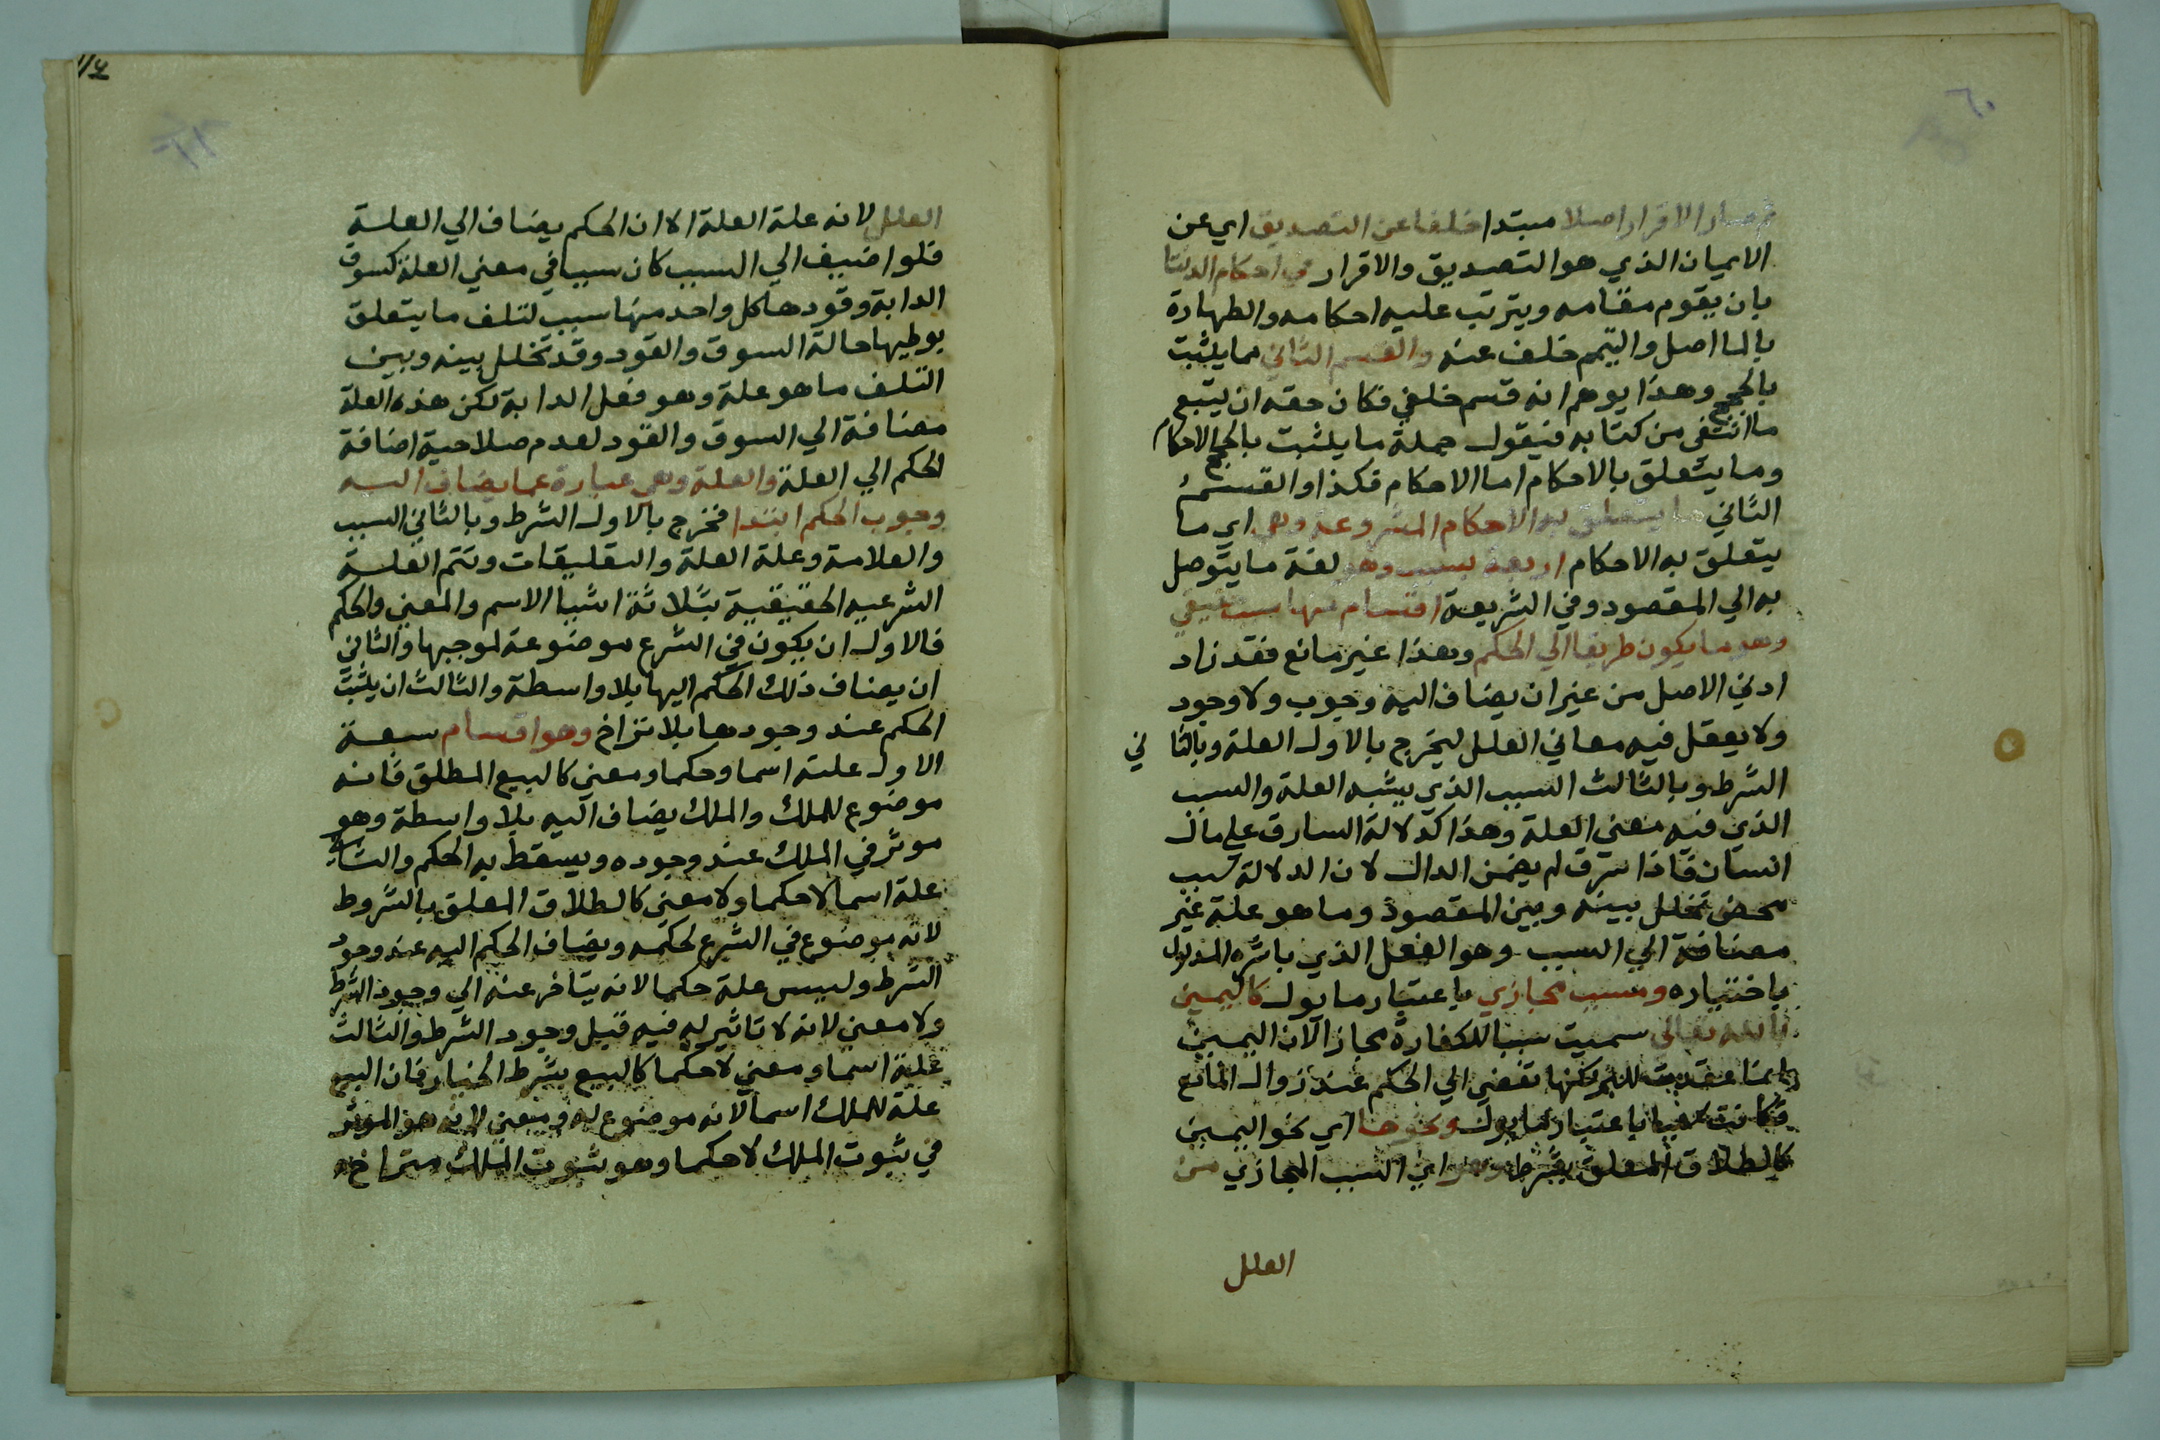 ثم صار الاقرار اصلا مبتدا خلفا عن التصديق اي عن
الايمان الذي هو التصديق والاقرار في احكام الدنيا
بان يقوم مقامه ويترتب عليه احكامه والطهارة
بالما اصل والتيمم خلف عنه والقسم الثاني مما يثبت
بالحجج وهذا يوهم انه قسم خلفي فكان حقه ان يتبع
ما انتفى من كتابه فنقول جملة ما يثبت بالحجج الاحكام
وما يتعلق بالاحكام اما الاحكام فكذا والقسم
الثاني ما يتعلق به الاحكام المشروعة وهي اي ما
يتعلق به الاحكام اربعة سبب وهو لغة ما يتوصل
به الي المقصود وفي الشريعة اقسام منها سبب حقيقي
وهو ما يكون طريقا الي الحكم وهذا غير مانع فقد زاد
في الاصل من غير ان يضاف اليه وجوب ولا وجود
ولا يعقل فيه معاني العلل ليخرج بالاول العلة وبالثا ني
الشرط وبالثالث السبب الذي يشبه العلة والسبب
الذي فيه معني العلة وهذا كدلالة السارق علي مال
انسان فاذا سرق لم يضمن الدال لان الدلالة سبب
محض تخلل بينه وبين المقصود وما هو علة غير
مضافة الي السبب وهو الفعل الذي باشره المدلول
باختياره وسبب مجازي باعتبار ما يول كاليمين
بالله تعالي سميت سببا للكفارة مجازا لان اليمين
انما عقدت للبر لكنها تفضي الي الحكم عند زوال المانع
فكانت سببا باعتبار ما يول ونحوها اي نحو اليمين
كالطلاق المعلق بشرط وهو اي السبب المجازي من
العلل
١١٤
العلل لانه علة العلة الا ان الحكم يضاف الي العلة
فلو اضيف الي السبب كان سببا في معني العلة كسوق
الدابة وقودها كل واحد منها سبب لتلف ما يتعلق
بوطيها حالة السوق والقود وقد تخلل بينه وبين
التلف ما هو علة وهو فعل الدابة لكن هذه العلة
مضافة الي السوق والقود لعدم صلاحية اضافة
الحكم الي العلة والعلة وهي عبارة عما يضاف اليه
وجوب الحكم ابتدا فخرج بالاول الشرط وبالثاني السبب
والعلامة وعلة العلة والتعليقات وتتم العلة
الشرعيه الحقيقية بثلاثة اشيا الاسم والمعني والحكم
فالاول ان يكون في الشرع موضوعة لموجبها والثاني
ان يضاف ذلك الحكم اليها بلا واسطة والثالث ان يثبت
الحكم عند وجودها بلا تراخ وهو اقسام سبعة
الاول علة اسما وحكما ومعني كالبيع المطلق فانه
موضوع للملك والملك يضاف اليه بلا واسطة وهو
موثر في الملك عند وجوده ويسقط به الحكم والثاني
علة اسما لا حكما ولا معني كالطلاق المعلق بالشروط
لانه موضوع في الشرع لحكمه ويضاف الحكم اليه عند وجود
الشرط وليس علة حكما لانه يتاخر عنه الي وجود الشرط
ولا معني لانه لا تاثير له فيه قبل وجود الشرط والثالث
علة اسما ومعني لا حكما كالبيع بشرط الخيار فان البيع
علة للملك اسما لانه موضوع له ومعني لانه هو الموثر
في ثبوت الملك لا حكما وهو ثبوت الملك متراخ